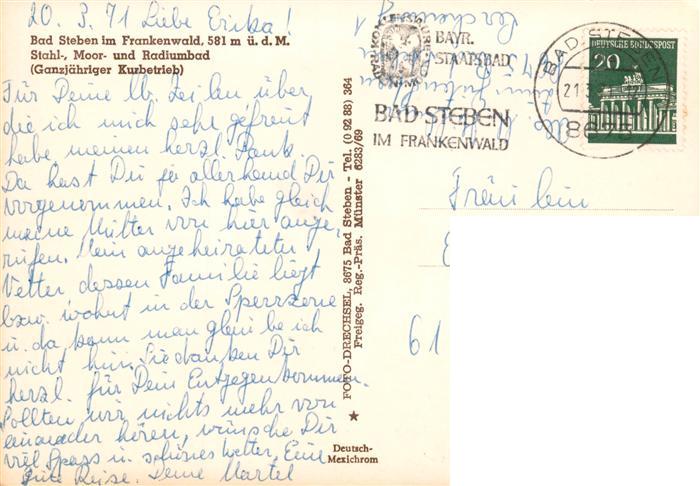 20. 3. 71 Liebe Erika!
Bad Steben im Frankenwald, 581 m ü. d. M.
Stahl-, Moor- und Radiumbad
(Ganzjähriger Kurbetrieb)
Für Deine lb. Zeilen über
die ich mich sehr gefreut
habe meinen herzl. Dank
Da hast Du ja allerhand Dir
vorgenommen. Ich habe gleich
meine Mutter von hier ange-
rufen. Mein angeheirateter
Vetter dessen Familie liegt
bzw. wohnt in der Sperrzone
u. da kann man glaube ich
nicht hin. Sie danken Dir
herzl. für Dein Entgegenkommen.
Sollten wir nichts mehr von
einander hören, wünsche Dir
viel Spass u. schönes Wetter. Eine
gute Reise. Deine
FOTO-DRECHSEL, 8675 Bad Steben - Tel. (0 92 88) 364
Freigeg. Reg.-Präs. Münster 6283/69
Deutsch-
Mexichrom
BAYR.
STAATSBAD
BAD STEBEN
IM FRANKENWALD
BAD STEBEN
21.3.
8675
DEUTSCHE BUNDESPOST
20
Fräulein
61